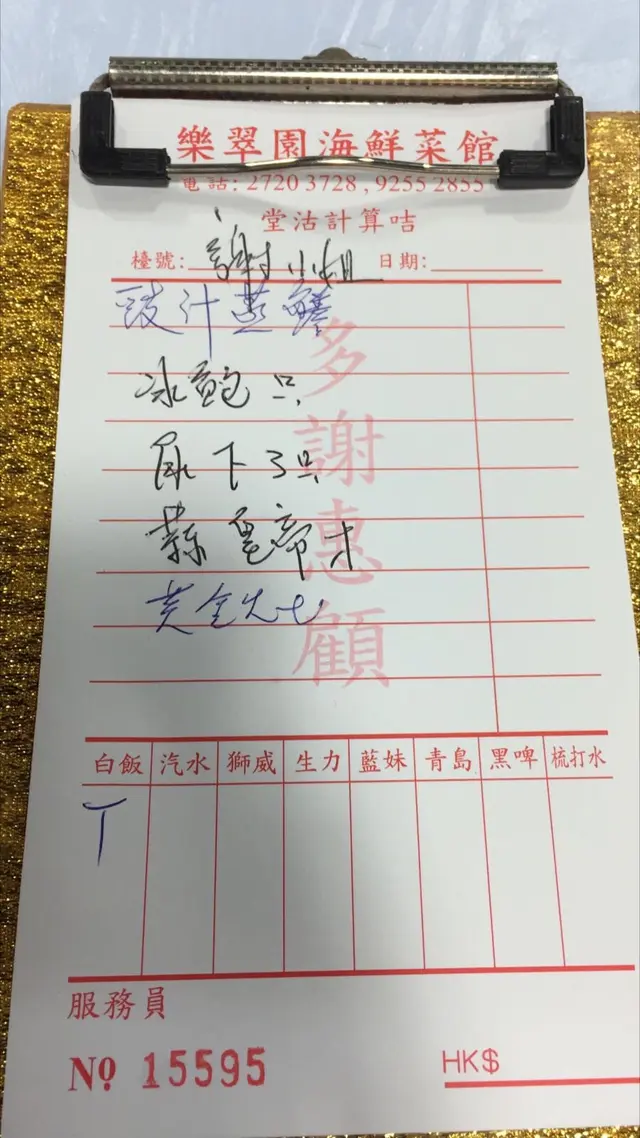 樂翠園海鮮菜館
電話: 2720 3728 , 9255 2855
堂沽計算咭
檯號: 謝小姐 日期:
豉汁蒸鱔
冰鮑 只
尿下3只
多謝惠顧
白飯 汽水 獅威 生力 藍妹 青島 黑啤 梳打水
服務員
Nº 15595
HK$